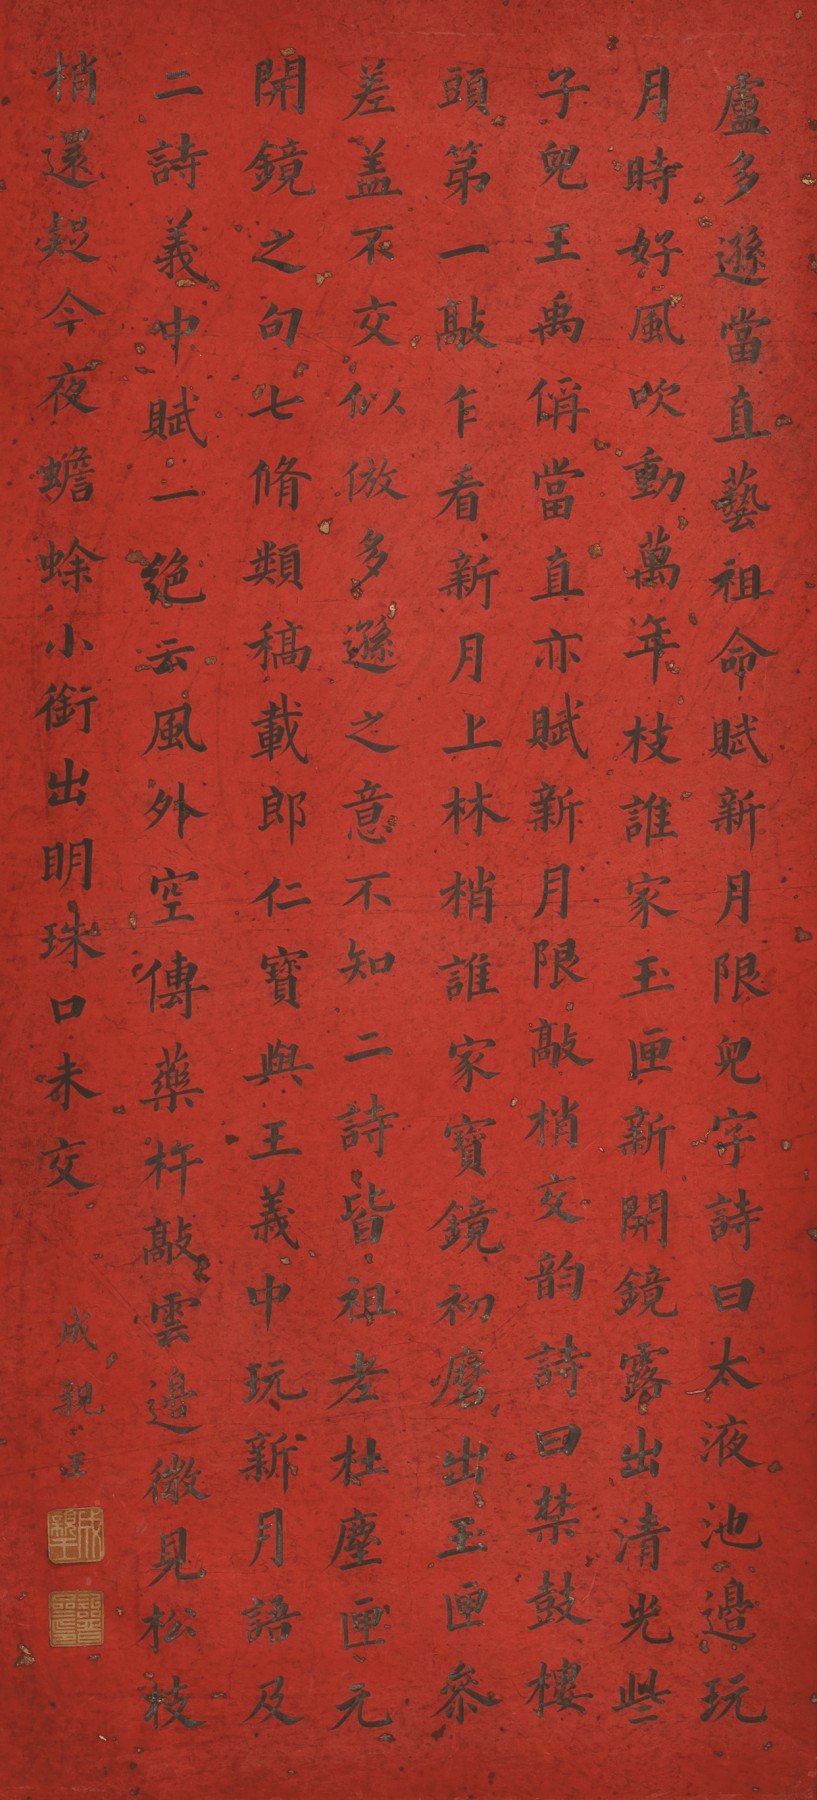 盧多遜當直藝祖命賦新月限兒字詩曰太液池邊玩
月時好風吹動萬年枝誰家玉匣新開鏡露出清光些
子兒王禹偁當直亦賦新月限敲梢交韵詩曰禁鼓樓
頭第一敲乍看新月上林梢誰家寶鏡初磨出玉匣參
差盖不交似倣多遜之意不知二詩皆祖老杜塵匣元
開鏡之句七脩類稿載郎仁寶與王義中玩新月語及
二詩義中賦一絶云風外空傳藥杵敲雲邊微見松枝
梢還疑今夜蟾蜍小銜出明珠口未交
成親王
成親王